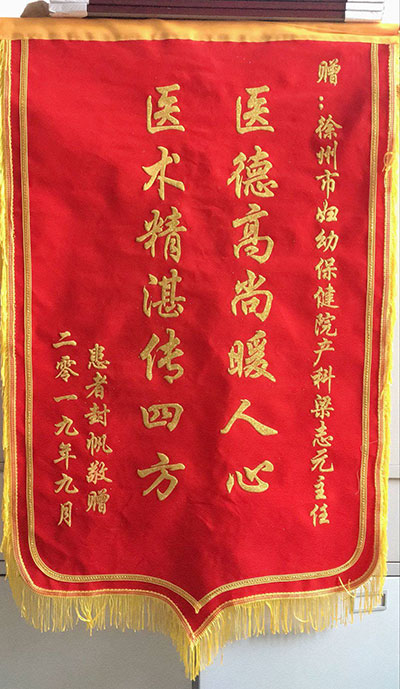 赠：徐州市妇幼保健院产科梁志元主任
医德高尚暖人心
医术精湛传四方
患者封帆敬赠
二零一九年九月